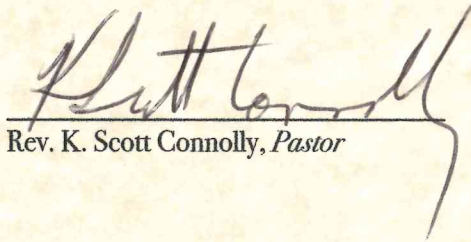 K Scott Connolly
Rev. K. Scott Connolly, Pastor